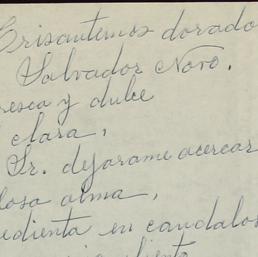 Crisantemos dorado
Salvador Novo.
resca y dulce
clara,
Sr. dejarame acercar
losa alma,
edienta en caudalos